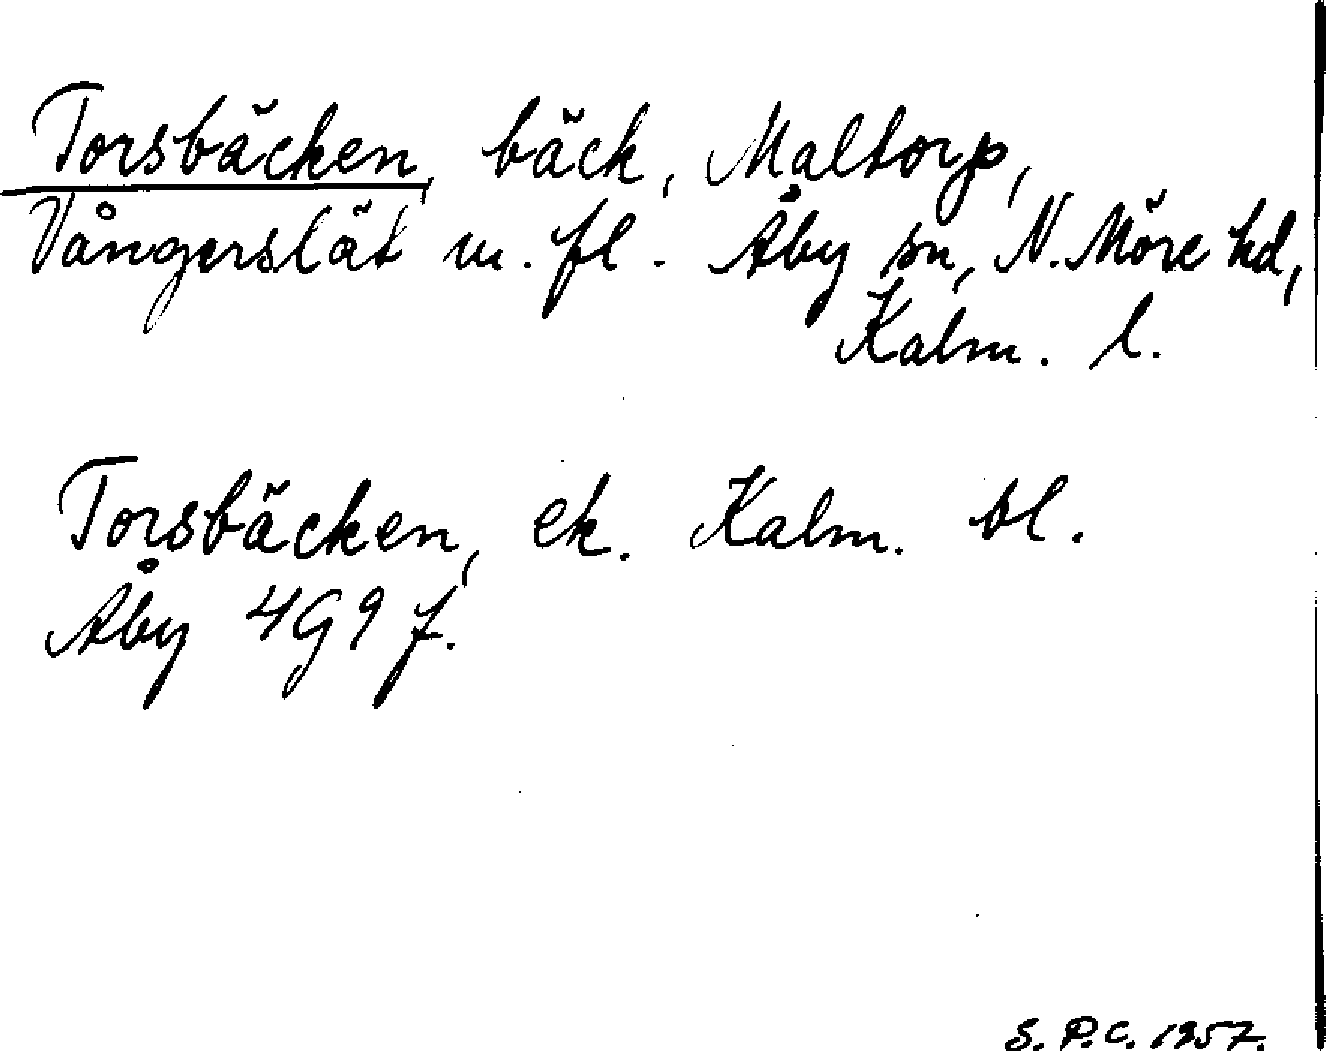 Torsbäcken, bäck, Maltorp,
Vångerslät m. fl. Åby sn, N. Möre hd,
Kalm. l.
Torsbäcken, ek. Kalm. bl.
Åby 4G9f.
S. P. C. 1957.